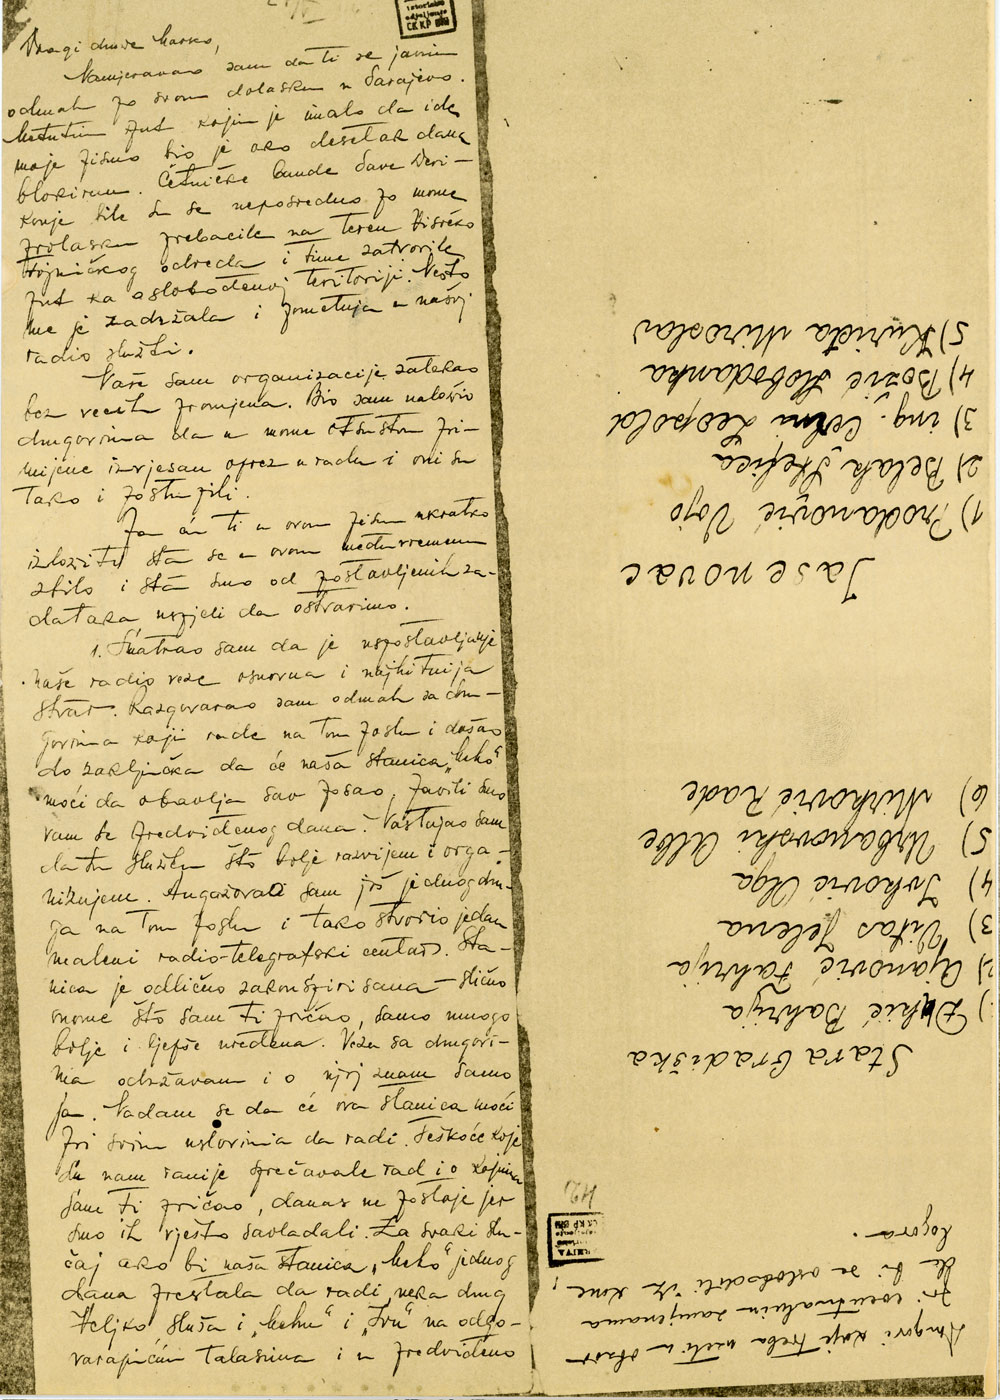 Dragi druže Marko,
Namjeravao sam da ti se javim
odmah po svom dolasku u Sarajevo.
Međutim put kojim je imalo da ide
moje pismo bio je oko desetak dana
blokiran. Četničke bande Save Deri-
konje bile su se neposredno po mome
prolasku prebacile na teren Visočko
Fojničkog odreda i time zatvorile
put ka oslobođenoj teritoriji. Nešto
me je zadržala i pometnja u našoj
radio službi.
Naše sam organizacije zatekao
bez većih promjena. Bio sam naložio
drugovima da u mome otsustvu pri-
mijene izvjesan oprez u radu i oni su
tako i postupili.
Ja ću ti u ovom pismu ukratko
izložiti šta se u ovom međuvremenu
zbilo i šta smo od postavljenih za-
dataka uspjeli da ostvarimo.
1. Smatrao sam da je uspostavljanje
naše radio veze osnovna i najhitnija
stvar. Razgovarao sam odmah sa dru-
govima koji rade na tom poslu i došao
do zaključka da će naša stanica „Meho“
moći da obavlja sav posao. Javili smo
vam se predviđenog dana. Nastojao sam
da tu službu što bolje razvijem i orga-
nizujem. Angažovao sam još jednog dru-
ga na tom poslu i tako stvorio jedan
maleni radio-telegrafski centar. Sta-
nica je odlično zakonspirisana - slično
onome što sam ti pričao, samo mnogo
bolje i ljepše uređena. Vezu sa drugovi-
ma održavam i o njoj znam samo
ja. Nadam se da će ova stanica moći
pri svim uslovima da radi. Teškoće koje
su nam ranije sprečavale rad i o kojima
sam ti pričao, danas ne postoje jer
smo ih vješto savladali. Za svaki slu-
čaj ako bi naša stanica „Meho“ jednog
dana prestala da radi neka drug
Veljko sluša i „Mehu“ i „Ivu“ na odgo-
varajućim talasima i u predviđeno
istorisko
odjeljenje
CK KP BiH
Drugovi koje treba uzeti u obzir
pri eventualnim zamjenama
da bi se oslobodili iz zone,
logora.
ARHIVA
CK KP BiH
Stara Gradiška
1) Đikić Bahrija
2) Ajanović Fahrija
3) Vitas Jelena
4) Ivković Olga
5) Urbanovski Albe
6) Mirković Rade
Jasenovac
1) Prodanović Vojo
2) Belak Štefica
3) ing. Leopold
4) Božić Slobodanka
5) Kuriđa Miroslav